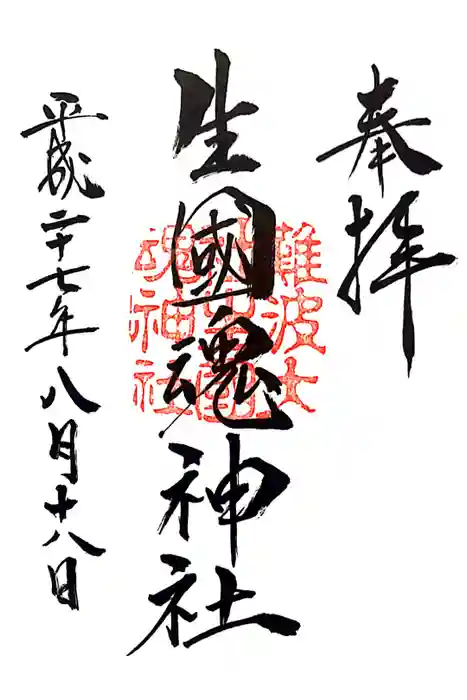 奉拝
生國魂神社
難波大
魂神社
平成二十七年八月十八日